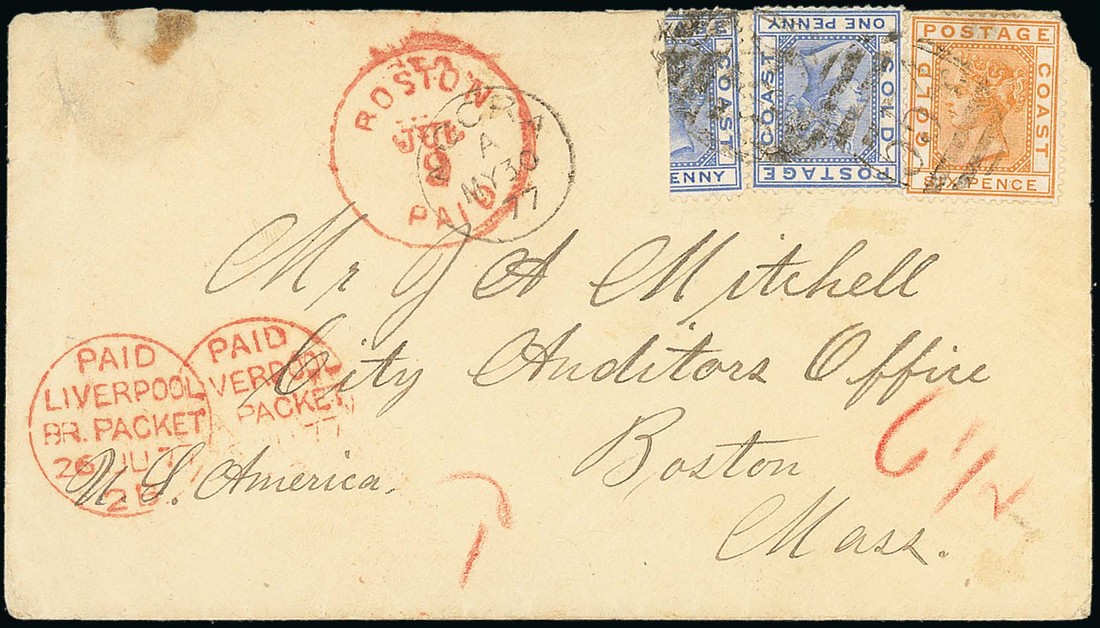 COAST
ENNY
ONE PENNY
GOLD
COAST
POSTAGE
POSTAGE
GOLD
COAST
SIX PENCE
BOSTON
JUL
9
PAID
ACCRA
A
MY 30
77
Mr J A Mitchell
City Auditors Office
Boston
Mass.
U. S. America,
PAID
LIVERPOOL
BR. PACKET
26 JU 77
2B
PAID
LIVERPOOL
PACKET
77
6 1/2
1